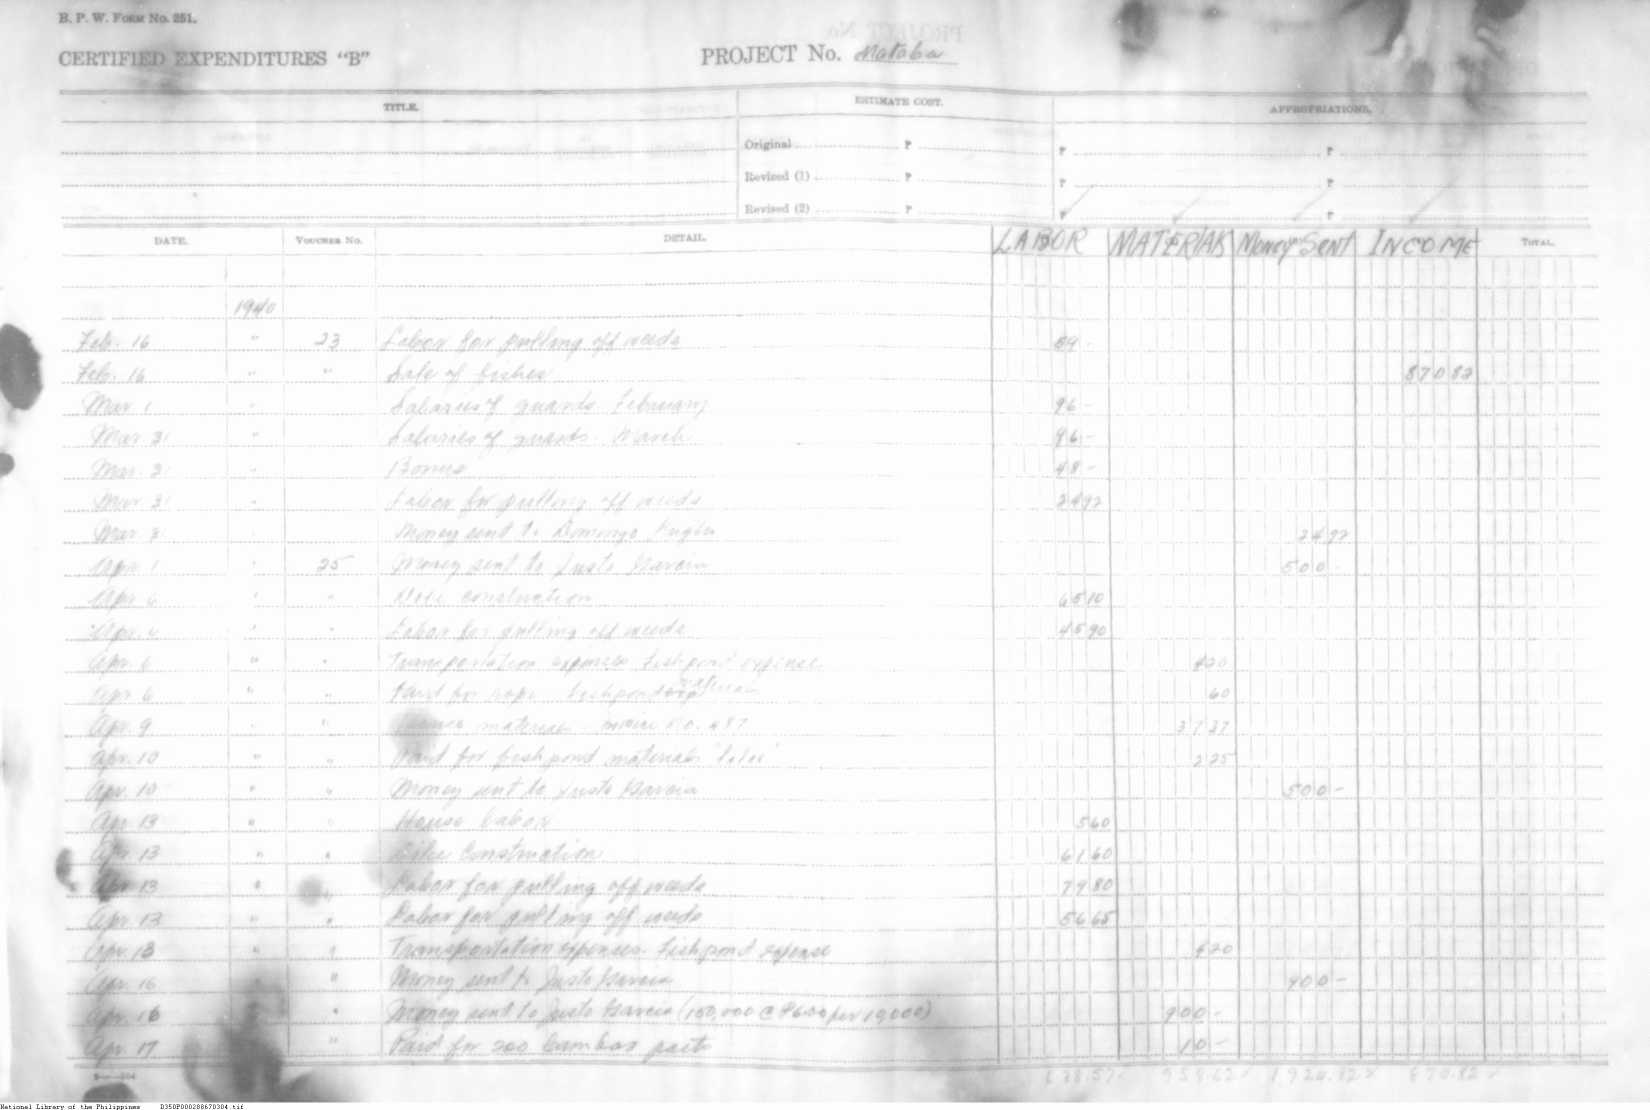 B. P. W. Form No. 251.
CERTIFIED EXPENDITURES "B"
PROJECT No. Mataba
TITLE. ESTIMATE COST. APPROPRIATIONS.
Original ₱ ₱ ₱
Revised (1) ₱ ₱ ₱
Revised (2) ₱ ₱ ₱
DATE. Voucher No. DETAIL. LABOR MATERIALS Money Sent INCOME Total.
1940
Feb. 16 " 23 Labor for pulling off weeds 84 -
Feb. 16 " " Sale of fishes 870 82
Mar 1 " Salaries of guards February 96 -
Mar 31 " Salaries of guards March 96 -
Mar. 31 " Bonus 48 -
Mar 31 " Labor for pulling off weeds 24 92
Mar 31 Money sent to Domingo 24 92
Apr. 1 " 25 Money sent to Justo Garcia 500 -
Apr 6 " " Dike construction 65 10
Apr. 6 " " Labor for pulling off weeds 45 90
Apr. 6 " " Transportation expenses fishpond expense 4 20
Apr 6 " " Paid for rope fishpond material 60
Apr. 9 " " materials 37 37
Apr. 10 " " Paid for fishpond materials 2 25
Apr. 10 " " Money sent to Justo Garcia 500 -
Apr 13 " " House Labor 5 60
Apr. 13 " " Dike Construction 61 60
Apr 13 " " Labor for pulling off weeds 79 80
Apr. 13 " " Labor for pulling off weeds 56 65
Apr. 13 " " Transportation expenses fishpond expense 4 20
Apr. 16 " " Money sent to Justo Garcia 400 -
Apr. 16 " " Money sent to Justo Garcia (150,000 @ ₱60.00 per 10,000) 900 -
Apr. 17 " Paid for 200 bamboo 10 -
959.62 1,924.92 870.82
National Library of the Philippines D350P000288670304.tif